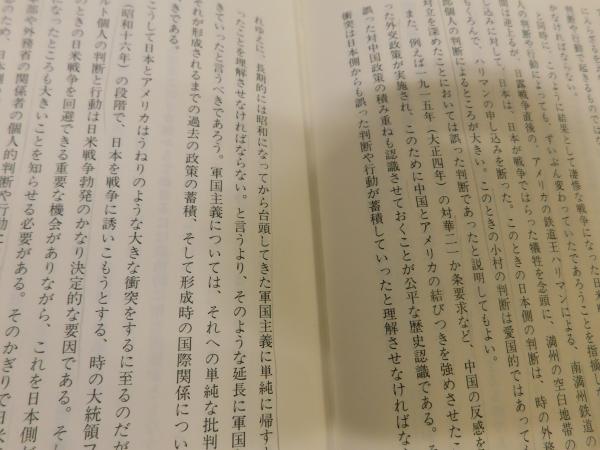 にえるを
判断や行動で起きるものでは
かなければならない。
と同時に、このように結果として凄惨な戦争になった日米
の判断や行動によっても、ずいぶん変わっていたであろうことを指摘した
間は逆上るが、日露戦争直後の、アメリカの鉄道王ハリマンによる、南満州鉄道の
し込みに対して、日本は、日本が戦争ではらった犠牲を念頭に、満州の空白地帯の
もくろんで、ハリマンの申し込みを断った。このときの日本側の判断は、時の外務
郎個人の判断によるところが大きい。このときの小村の判断は愛国的ではあっても
対立を深めたことにおいては誤った判断であったと説明してもよい。
また、例えば一九一五年（大正四年）の対華二一か条要求など、中国の反感を
った外交政策が実施され、このために中国とアメリカの結びつきを強めさせたこ
誤った対中国政策の積み重ねも認識させておくことが公平な歴史認識である。そ
衝突は日本側からも誤った判断や行動が蓄積していったと理解させなければな
れゆえに、長期的には昭和になってから台頭してきた軍国主義に単純に帰すも
ったことを理解させなければならない。と言うより、そのような延長に軍国
きていったと言うべきであろう。軍国主義については、それへの単純な批判
それが形成されるまでの過去の政策の蓄積、そして形成時の国際関係につい
きである。
こうして日本とアメリカはうねりのような大きな衝突をするに至るのだが
（昭和十六年）の段階で、日本を戦争に誘いこもうとする、時の大統領フ
ルト個人の判断と行動は日米戦争勃発のかなり決定的な要因である。そし
のときの日米戦争を回避できる重要な機会がありながら、これを日本側が
になったところも大きいことを知らせる必要がある。そのかぎりで日米
軍や外務省の関係者の個人的判断や行動に
のため、日本側